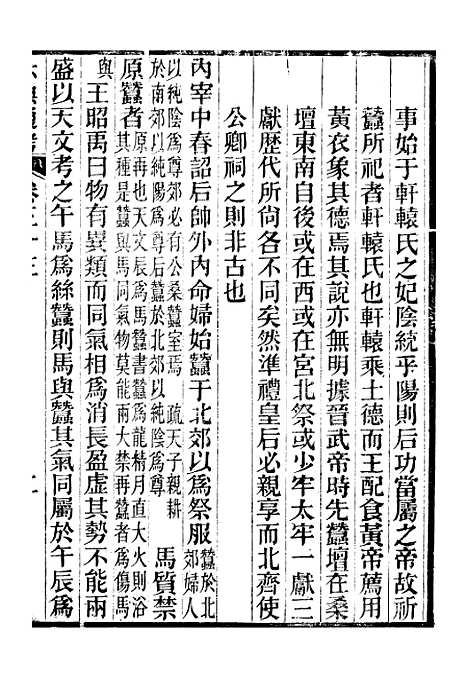 事始于軒轅氏之妃陰統乎陽則后功當屬之帝故祈
蠶所祀者軒轅氏也軒轅乘土德而王配食黃帝薦用
黃衣象其德焉其說亦無明據晉武帝時先蠶壇在桑
壇東南自後或在西或在宮北祭或少牢太牢一獻三
獻歷代所尚各不同矣然準禮皇后必親享而北齊使
公卿祠之則非古也
內宰中春詔后帥外內命婦始蠶于北郊以爲祭服蠶於北郊婦人
以純陰爲尊郊必有公桑蠶室焉 疏天子親耕
於南郊以純陽爲尊后蠶於北郊以純陰爲尊
馬質禁
原蠶者原再也天文辰爲馬蠶書蠶爲龍精月直大火則浴
其種是蠶與馬同氣物莫能兩大禁再蠶者爲傷馬
與
王昭禹曰物有異類而同氣相爲消長盈虛其勢不能兩
盛以天文考之午馬爲絲蠶則馬與蠶其氣同屬於午辰爲
卷三十三